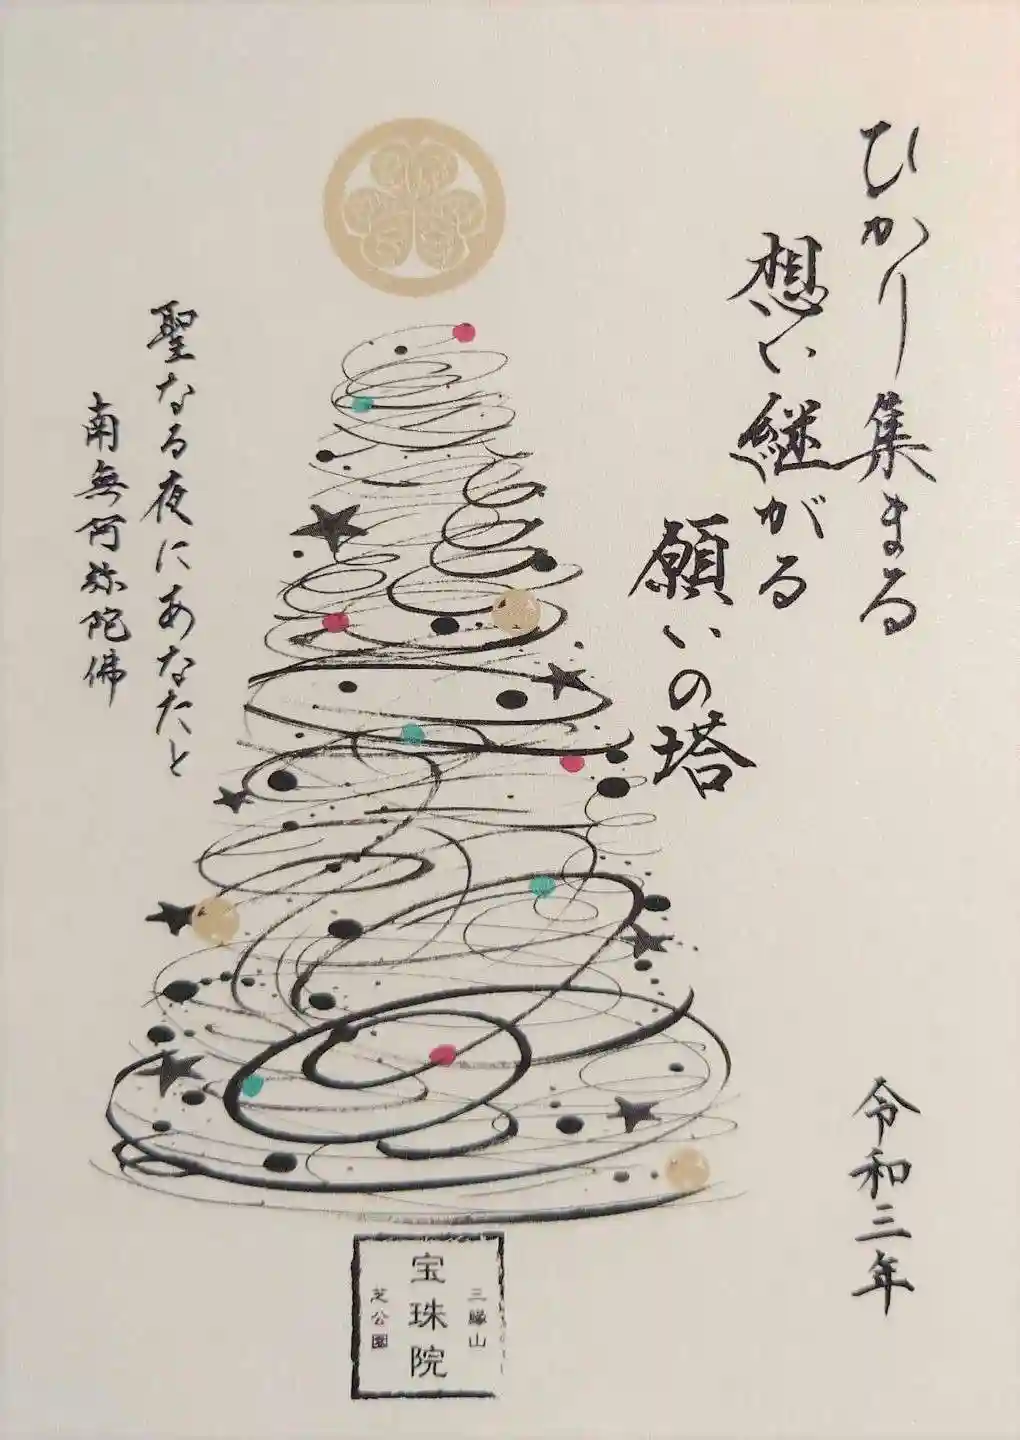 ひかり集まる
想い継がる
願いの塔
聖なる夜にあなたと
南無阿弥陀佛
令和三年
三縁山
宝珠院
芝公園